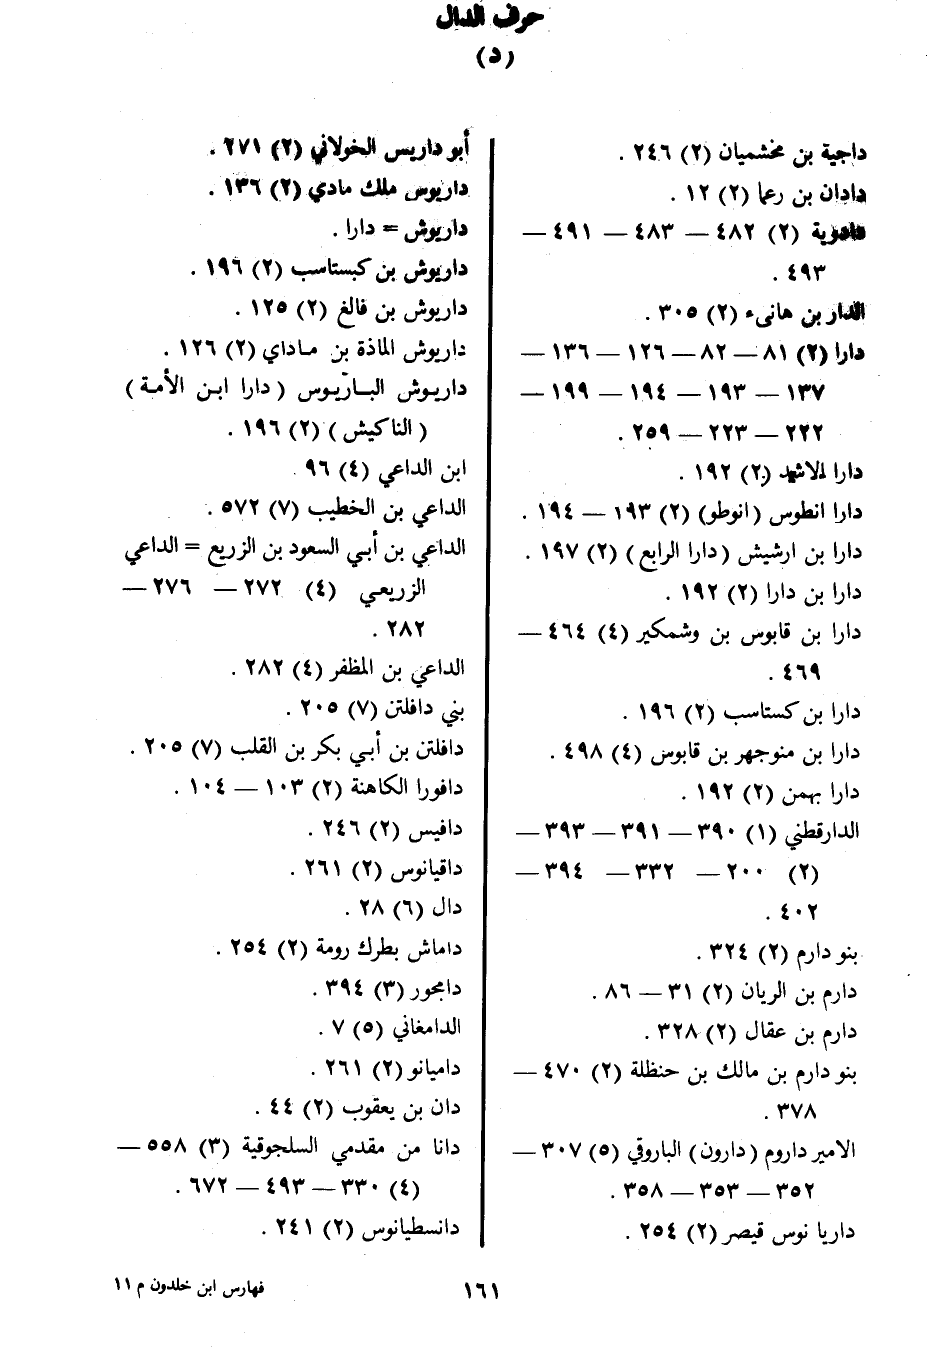 حرف الدال
(د)
داجية بن مخشميان (٢) ٢٤٦ .
دادان بن رعما (٢) ١٢ .
(٢) ٤٨٢ — ٤٨٣ — ٤٩١ —
٤٩٣ .
الدار بن هانىء (٢) ٣٠٥ .
دارا (٢) ٨١ — ٨٢ — ١٢٦ — ١٣٦ —
١٣٧ — ١٩٣ — ١٩٤ — ١٩٩ —
٢٢٢ — ٢٢٣ — ٢٥٩ .
دارا الاشهد (٢) ١٩٢ .
دارا انطوس (انوطو) (٢) ١٩٣ — ١٩٤ .
دارا بن ارشيش (دارا الرابع) (٢) ١٩٧ .
دارا بن دارا (٢) ١٩٢ .
دارا بن قابوس بن وشمكير (٤) ٤٦٤ —
٤٦٩ .
دارا بن كستاسب (٢) ١٩٦ .
دارا بن منوجهر بن قابوس (٤) ٤٩٨ .
دارا بهمن (٢) ١٩٢ .
الدارقطني (١) ٣٩٠ — ٣٩١ — ٣٩٣ —
(٢) ٢٠٠ — ٣٣٢ — ٣٩٤ —
٤٠٢ .
بنو دارم (٢) ٣٢٤ .
دارم بن الريان (٢) ٣١ — ٨٦ .
دارم بن عقال (٢) ٣٢٨ .
بنو دارم بن مالك بن حنظلة (٢) ٤٧٠ —
٣٧٨ .
الامير داروم (دارون) الباروقي (٥) ٣٠٧ —
٣٥٢ — ٣٥٣ — ٣٥٨ .
داريا نوس قيصر (٢) ٢٥٤ .
أبو داريس الخولاني (٢) ٢٧١ .
داريوس ملك مادي (٢) ١٣٦ .
داريوش = دارا .
داريوش بن كبستاسب (٢) ١٩٦ .
داريوش بن فالغ (٢) ١٢٥ .
داريوش الماذة بن ماداي (٢) ١٢٦ .
داريوش الباريّوس (دارا ابن الأمة)
(الناكيش) (٢) ١٩٦ .
ابن الداعي (٤) ٩٦ .
الداعي بن الخطيب (٧) ٥٧٢ .
الداعي بن أبي السعود بن الزريع = الداعي
الزريعي (٤) ٢٧٢ — ٢٧٦ —
٢٨٢ .
الداعي بن المظفر (٤) ٢٨٢ .
بني دافلتن (٧) ٢٠٥ .
دافلتن بن أبي بكر بن القلب (٧) ٢٠٥ .
دافورا الكاهنة (٢) ١٠٣ — ١٠٤ .
دافيس (٢) ٢٤٦ .
داقيانوس (٢) ٢٦١ .
دال (٦) ٢٨ .
داماش بطرك رومة (٢) ٢٥٤ .
دامجور (٣) ٣٩٤ .
الدامغاني (٥) ٧ .
داميانو (٢) ٢٦١ .
دان بن يعقوب (٢) ٤٤ .
دانا من مقدمي السلجوقية (٣) ٥٥٨ —
(٤) ٣٣٠ — ٤٩٣ — ٦٧٢ .
دانسطيانوس (٢) ٢٤١ .
١٦١
فهارس ابن خلدون م ١١